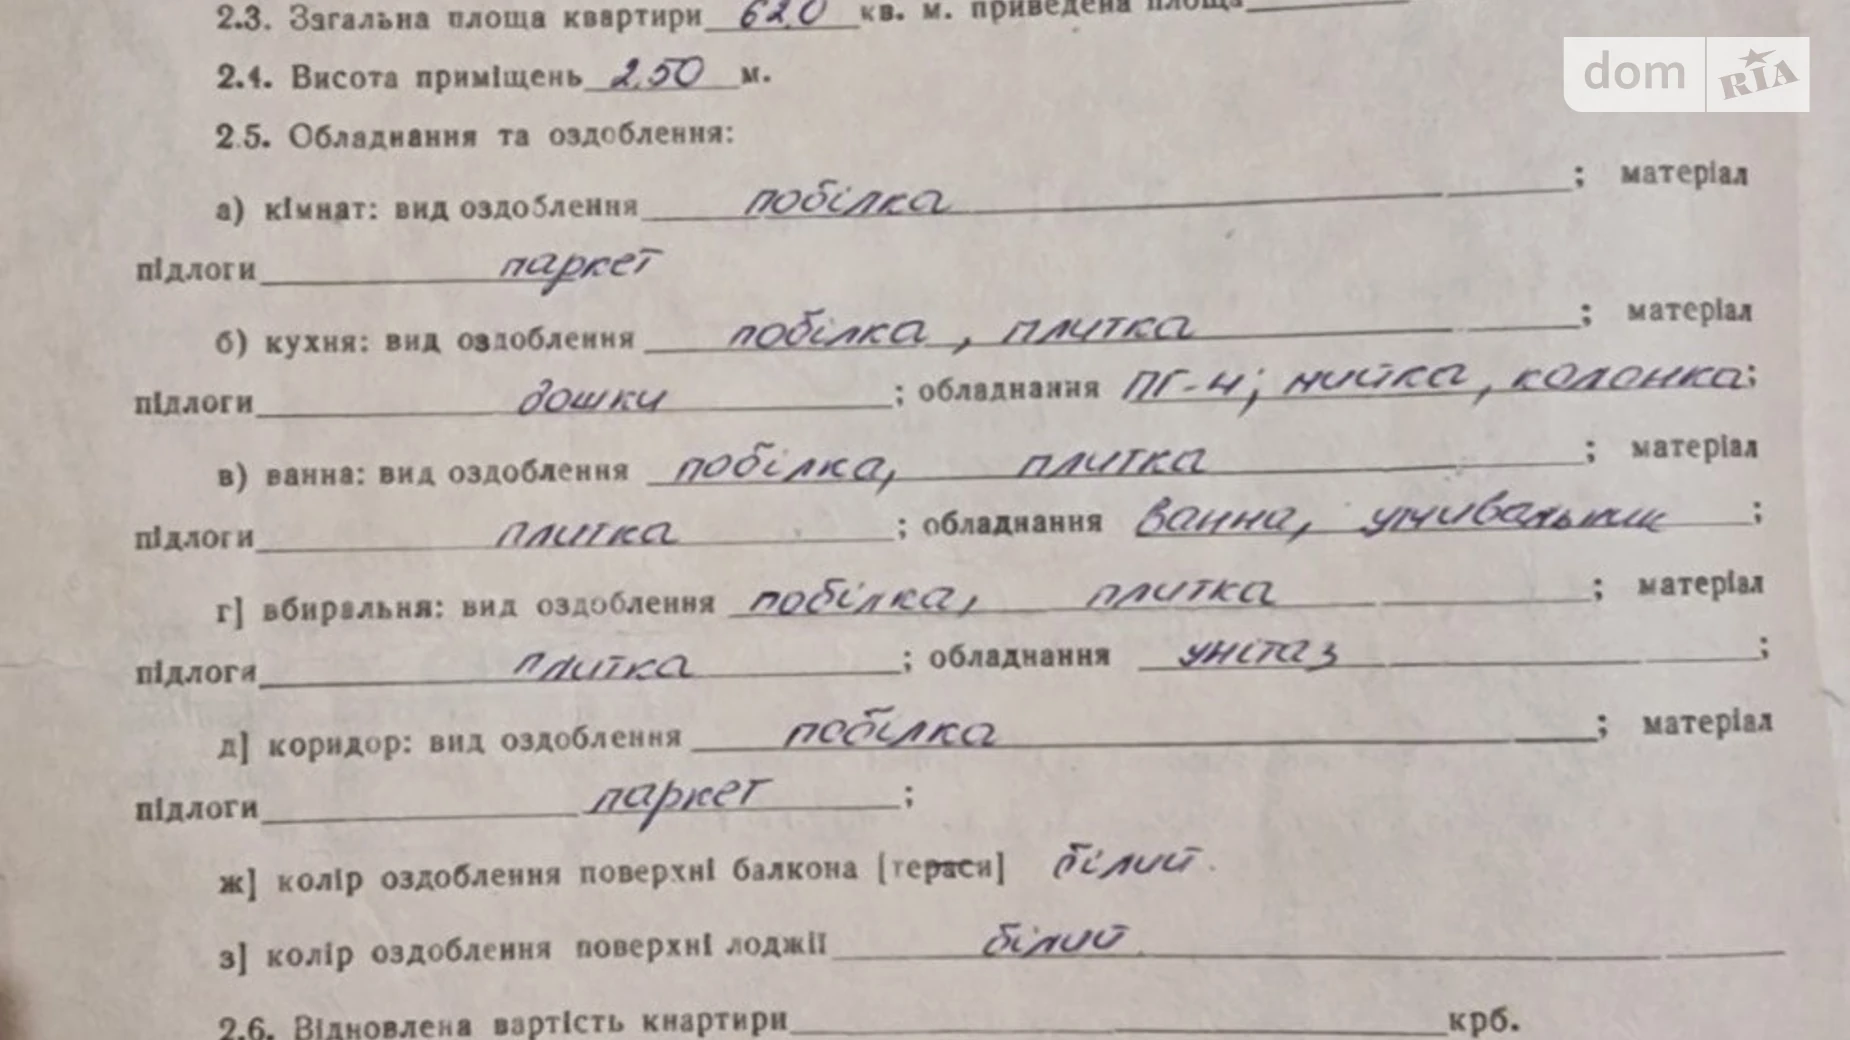 2.3. Загальна площа квартири 62,0 кв. м. приведена площа
dom RIA
2.4. Висота приміщень 2,50 м.
2.5. Обладнання та оздоблення:
а) кімнат: вид оздоблення побілка ; матеріал
підлоги паркет
б) кухня: вид оздоблення побілка, плитка ; матеріал
підлоги дошки ; обладнання ПГ-4; мийка, колонка;
в) ванна: вид оздоблення побілка, плитка ; матеріал
підлоги плитка ; обладнання ванна, умивальник ;
г] вбиральня: вид оздоблення побілка, плитка ; матеріал
підлоги плитка ; обладнання унітаз ;
д] коридор: вид оздоблення побілка ; матеріал
підлоги паркет ;
ж] колір оздоблення поверхні балкона [тераси] білий.
з] колір оздоблення поверхні лоджії білий.
2.6. Відновлена вартість квартири крб.